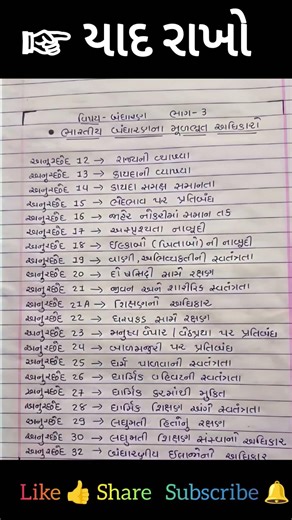 ☞ યાદ રાખો
વિષય - બંધારણ ભાગ - 3
• ભારતીય બંધારણના મૂળભૂત અધિકારો
અનુચ્છેદ 12 → રાજ્યની વ્યાખ્યા
અનુચ્છેદ 13 → કાયદાની વ્યાખ્યા
અનુચ્છેદ 14 → કાયદા સમક્ષ સમાનતા
અનુચ્છેદ 15 → ભેદભાવ પર પ્રતિબંધ
અનુચ્છેદ 16 → જાહેર નોકરીમાં સમાન તક
અનુચ્છેદ 17 → અસ્પૃશ્યતા નાબૂદી
અનુચ્છેદ 18 → ઈલ્કાબો (ખિતાબો) ની નાબૂદી
અનુચ્છેદ 19 → વાણી, અભિવ્યક્તિની સ્વતંત્રતા
અનુચ્છેદ 20 → દોષસિદ્ધિ સામે રક્ષણ
અનુચ્છેદ 21 → જીવન અને શારીરિક સ્વતંત્રતા
અનુચ્છેદ 21A → શિક્ષણનો અધિકાર
અનુચ્છેદ 22 → ધરપકડ સામે રક્ષણ
અનુચ્છેદ 23 → મનુષ્ય વેપાર / વેઠપ્રથા પર પ્રતિબંધ
અનુચ્છેદ 24 → બાળમજૂરી પર પ્રતિબંધ
અનુચ્છેદ 25 → ધર્મ પાળવાની સ્વતંત્રતા
અનુચ્છેદ 26 → ધાર્મિક વહિવટની સ્વતંત્રતા
અનુચ્છેદ 27 → ધાર્મિક કરમાંથી મુક્તિ
અનુચ્છેદ 28 → ધાર્મિક શિક્ષણ અંગે સ્વતંત્રતા
અનુચ્છેદ 29 → લઘુમતી હિતોનું રક્ષણ
અનુચ્છેદ 30 → લઘુમતી શિક્ષણ સંસ્થાનો અધિકાર
અનુચ્છેદ 32 → બંધારણીય ઈલાજોનો અધિકાર
Like 👍 Share Subscribe 🔔